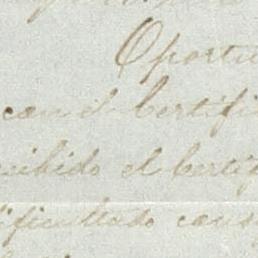 Oportu
can el Certifi
cibido el Certif
dificultado caus